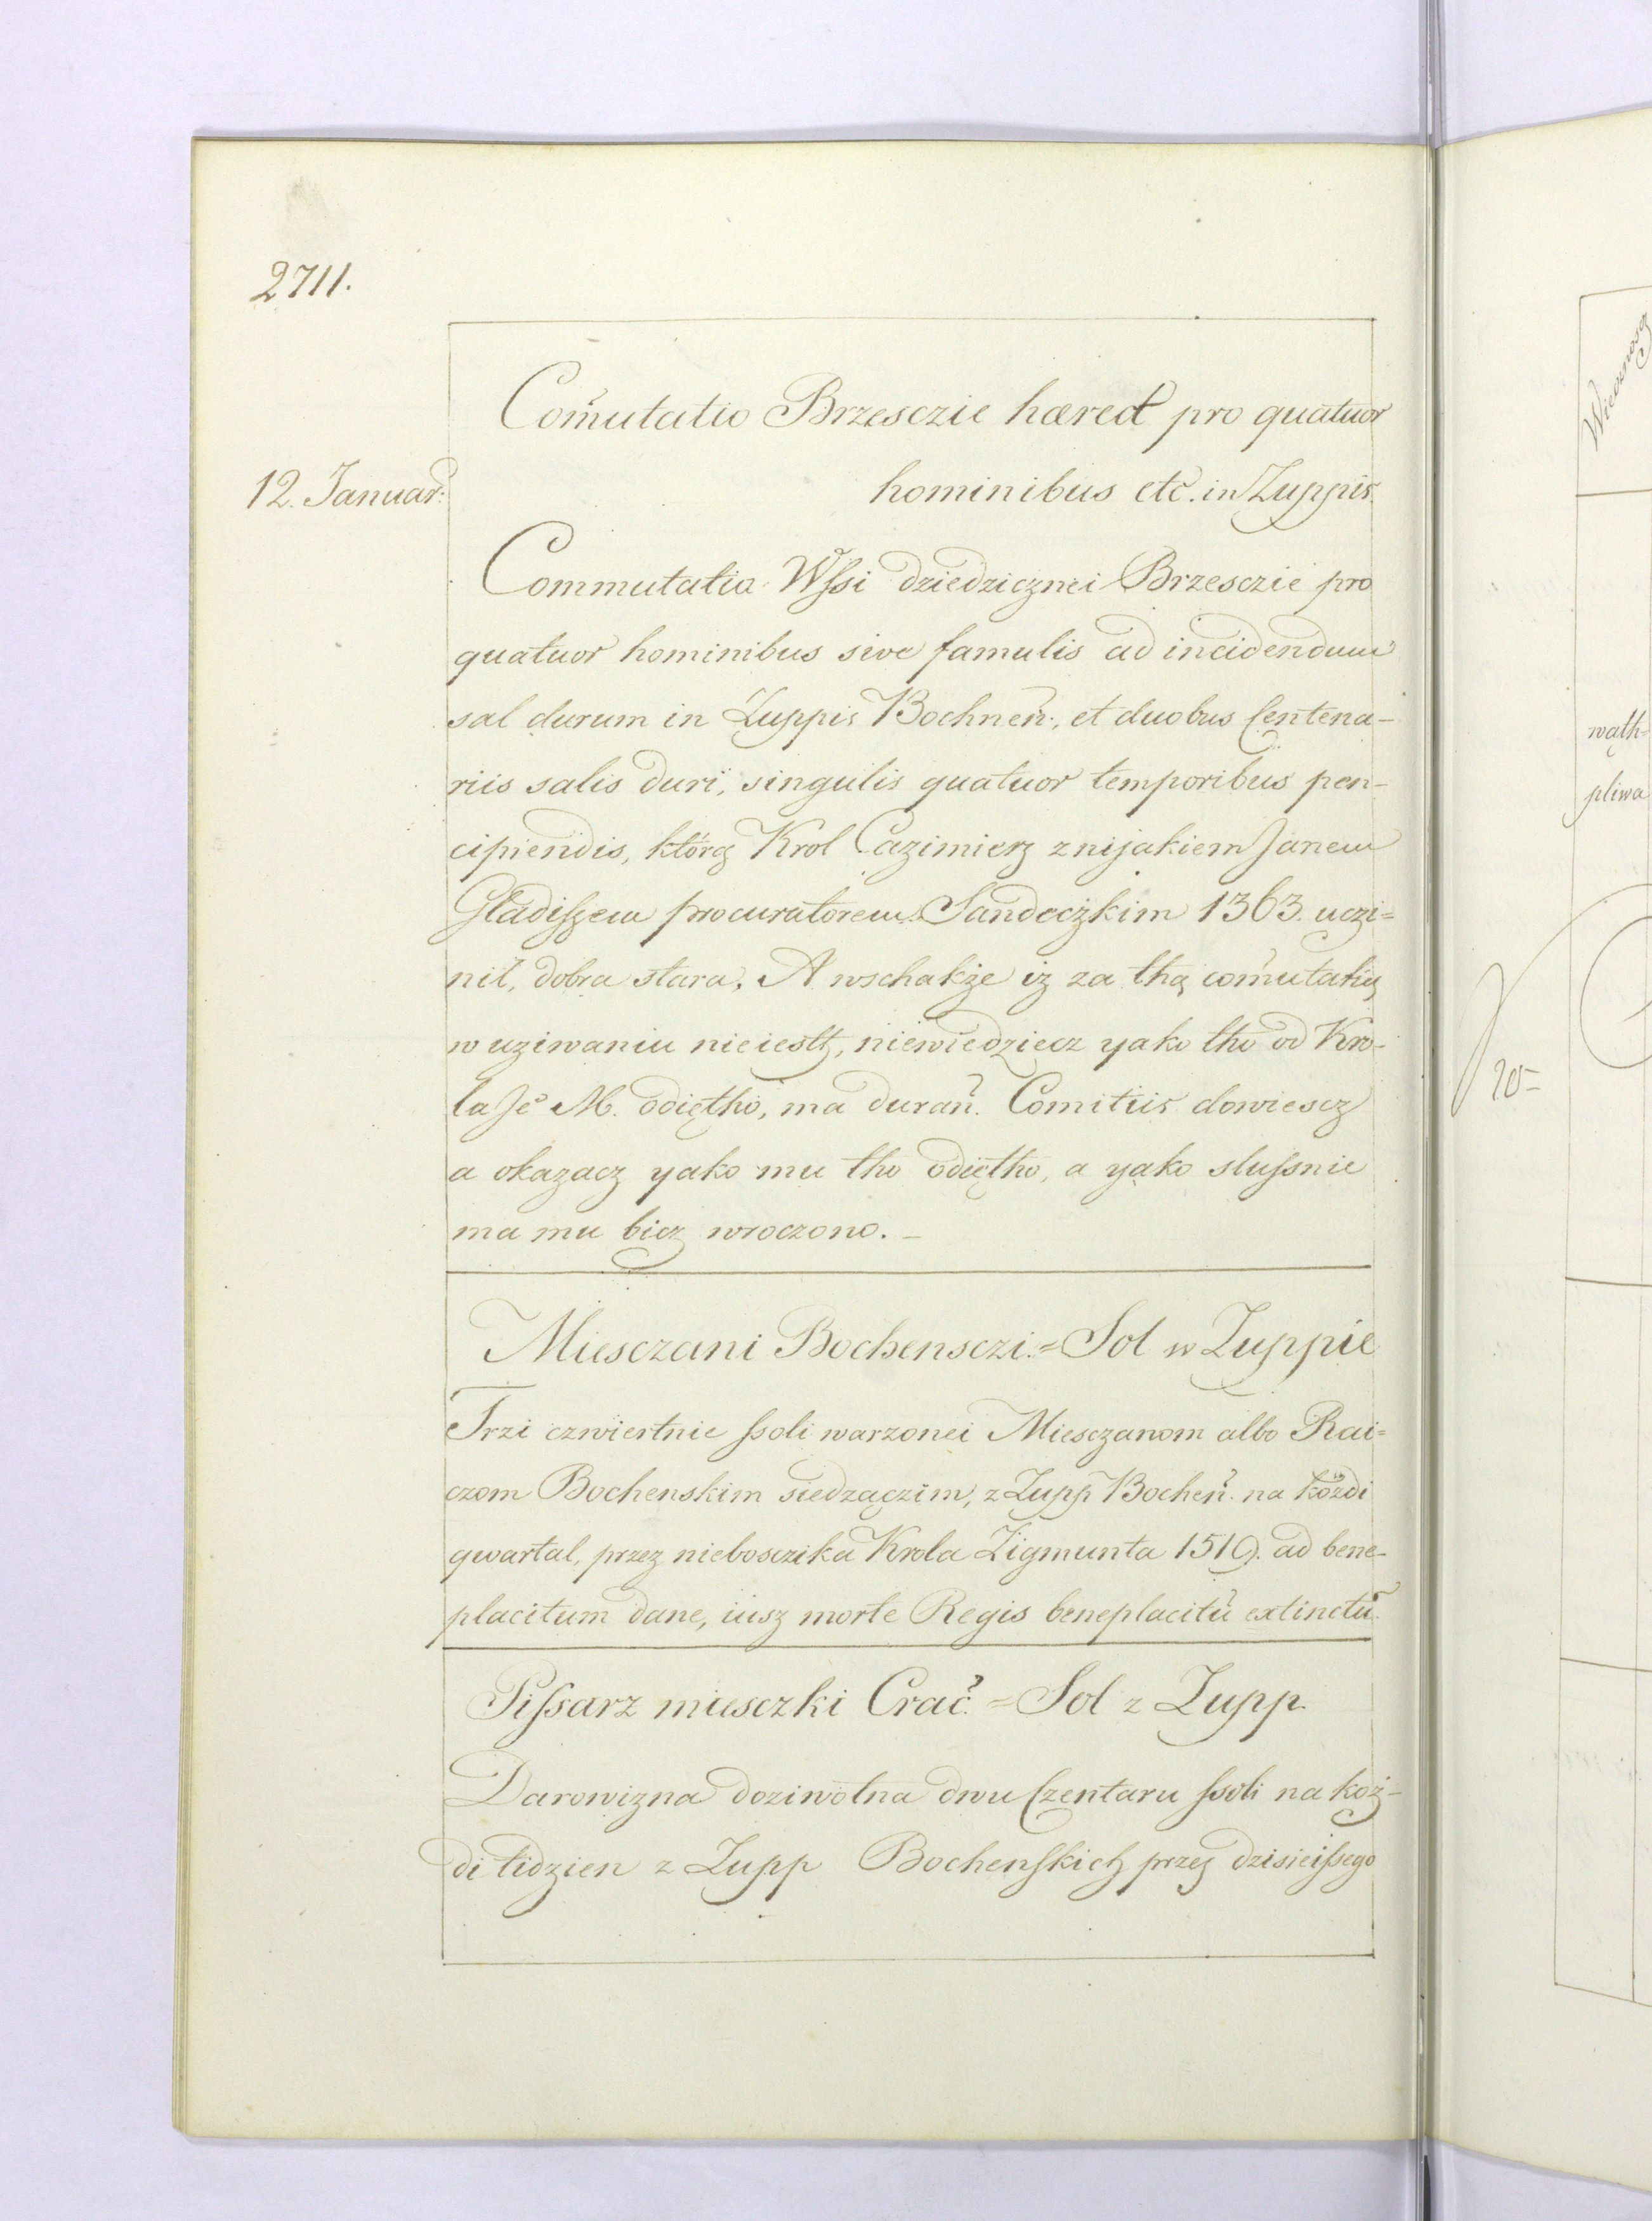 2711.
Com̃utatio Brzesczie hæred pro quatuor
12. Januar:
hominibus etc. in Zuppis.
Commutatia Wſsi dziedzicznei Brzesczie pro
quatuor hominibus sive famulis ad incidendum
sal durum in Zuppis Bochneñ:, et duobus Centena-
riis salis duri, singulis quatuor temporibus per-
cipiendis, którą Krol Cazimierz z nijakiem Janem
Gładiſzem procuratorem Sandeczkim 1363. uczi=
nił, dobra stara, A wschakże iz za thą com̃utatią
w uziwaniu nieiesth, niewiedziecz yako tho od Kro-
la Jẽ M. odiętho, ma durañ. Comitiis dowiescz
a okazacz yako mu tho odiętho, a yako sluſsnie
ma mu bicz wroczono. –
Miesczani Bochensczi. = Sol w Zuppie
Trzi czwiertnie ſsoli warzonei Miesczanom albo Rai=
czom Bochenskim siedzączim, z Zupp Bocheñ. na kożdi
qwartal, przez nieboszczika Krola Zigmunta 1519. ad bene-
placitum dane, iusz morte Regis beneplacitũ extinctũ.
Piſsarz miesczki Crac̃. = Sol z Zupp.
Darowizna doziwotna dwu Czentaru ſsoli na koż-
di tidzien z Zupp Bochenſkich przez dzisieiſsego
Wiecznoscz
wąth=
pliwa
20–